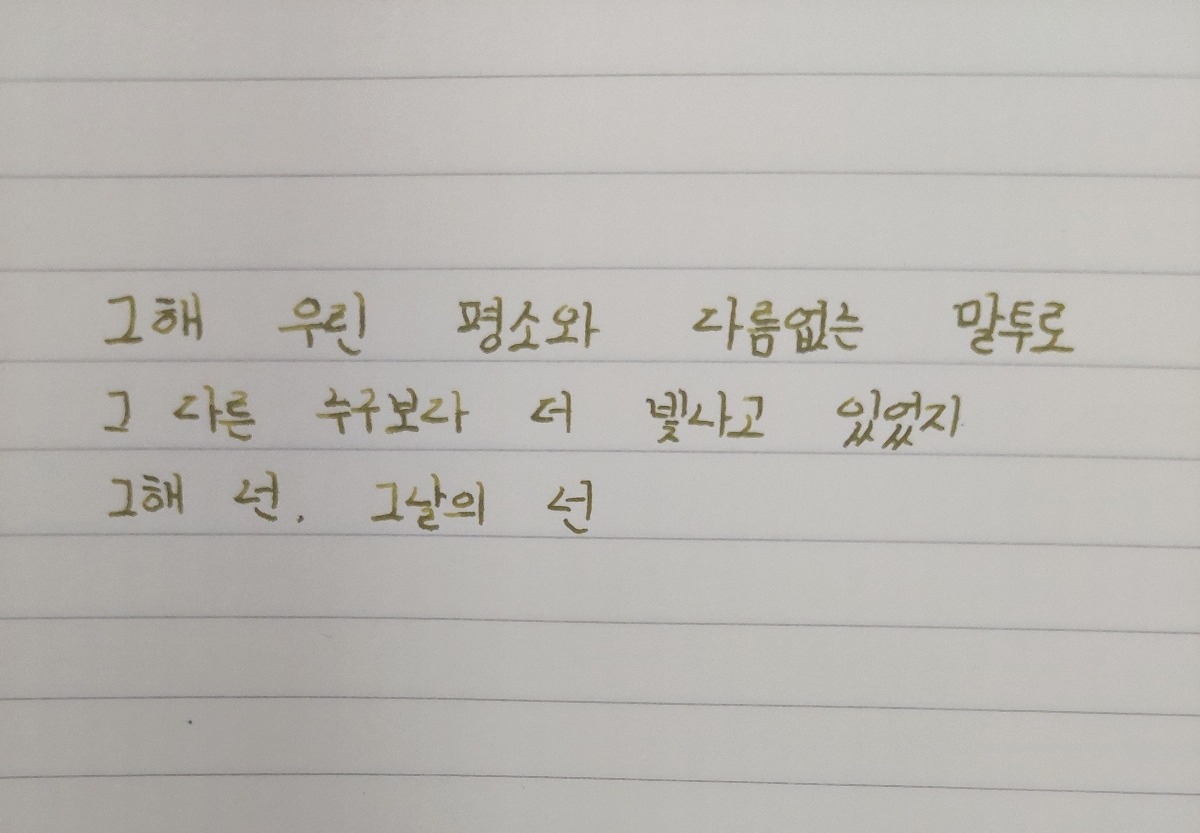 그해 우린 평소와 다름없는 말투로
그 다른 누구보다 더 빛나고 있었지
그해 넌. 그날의 넌